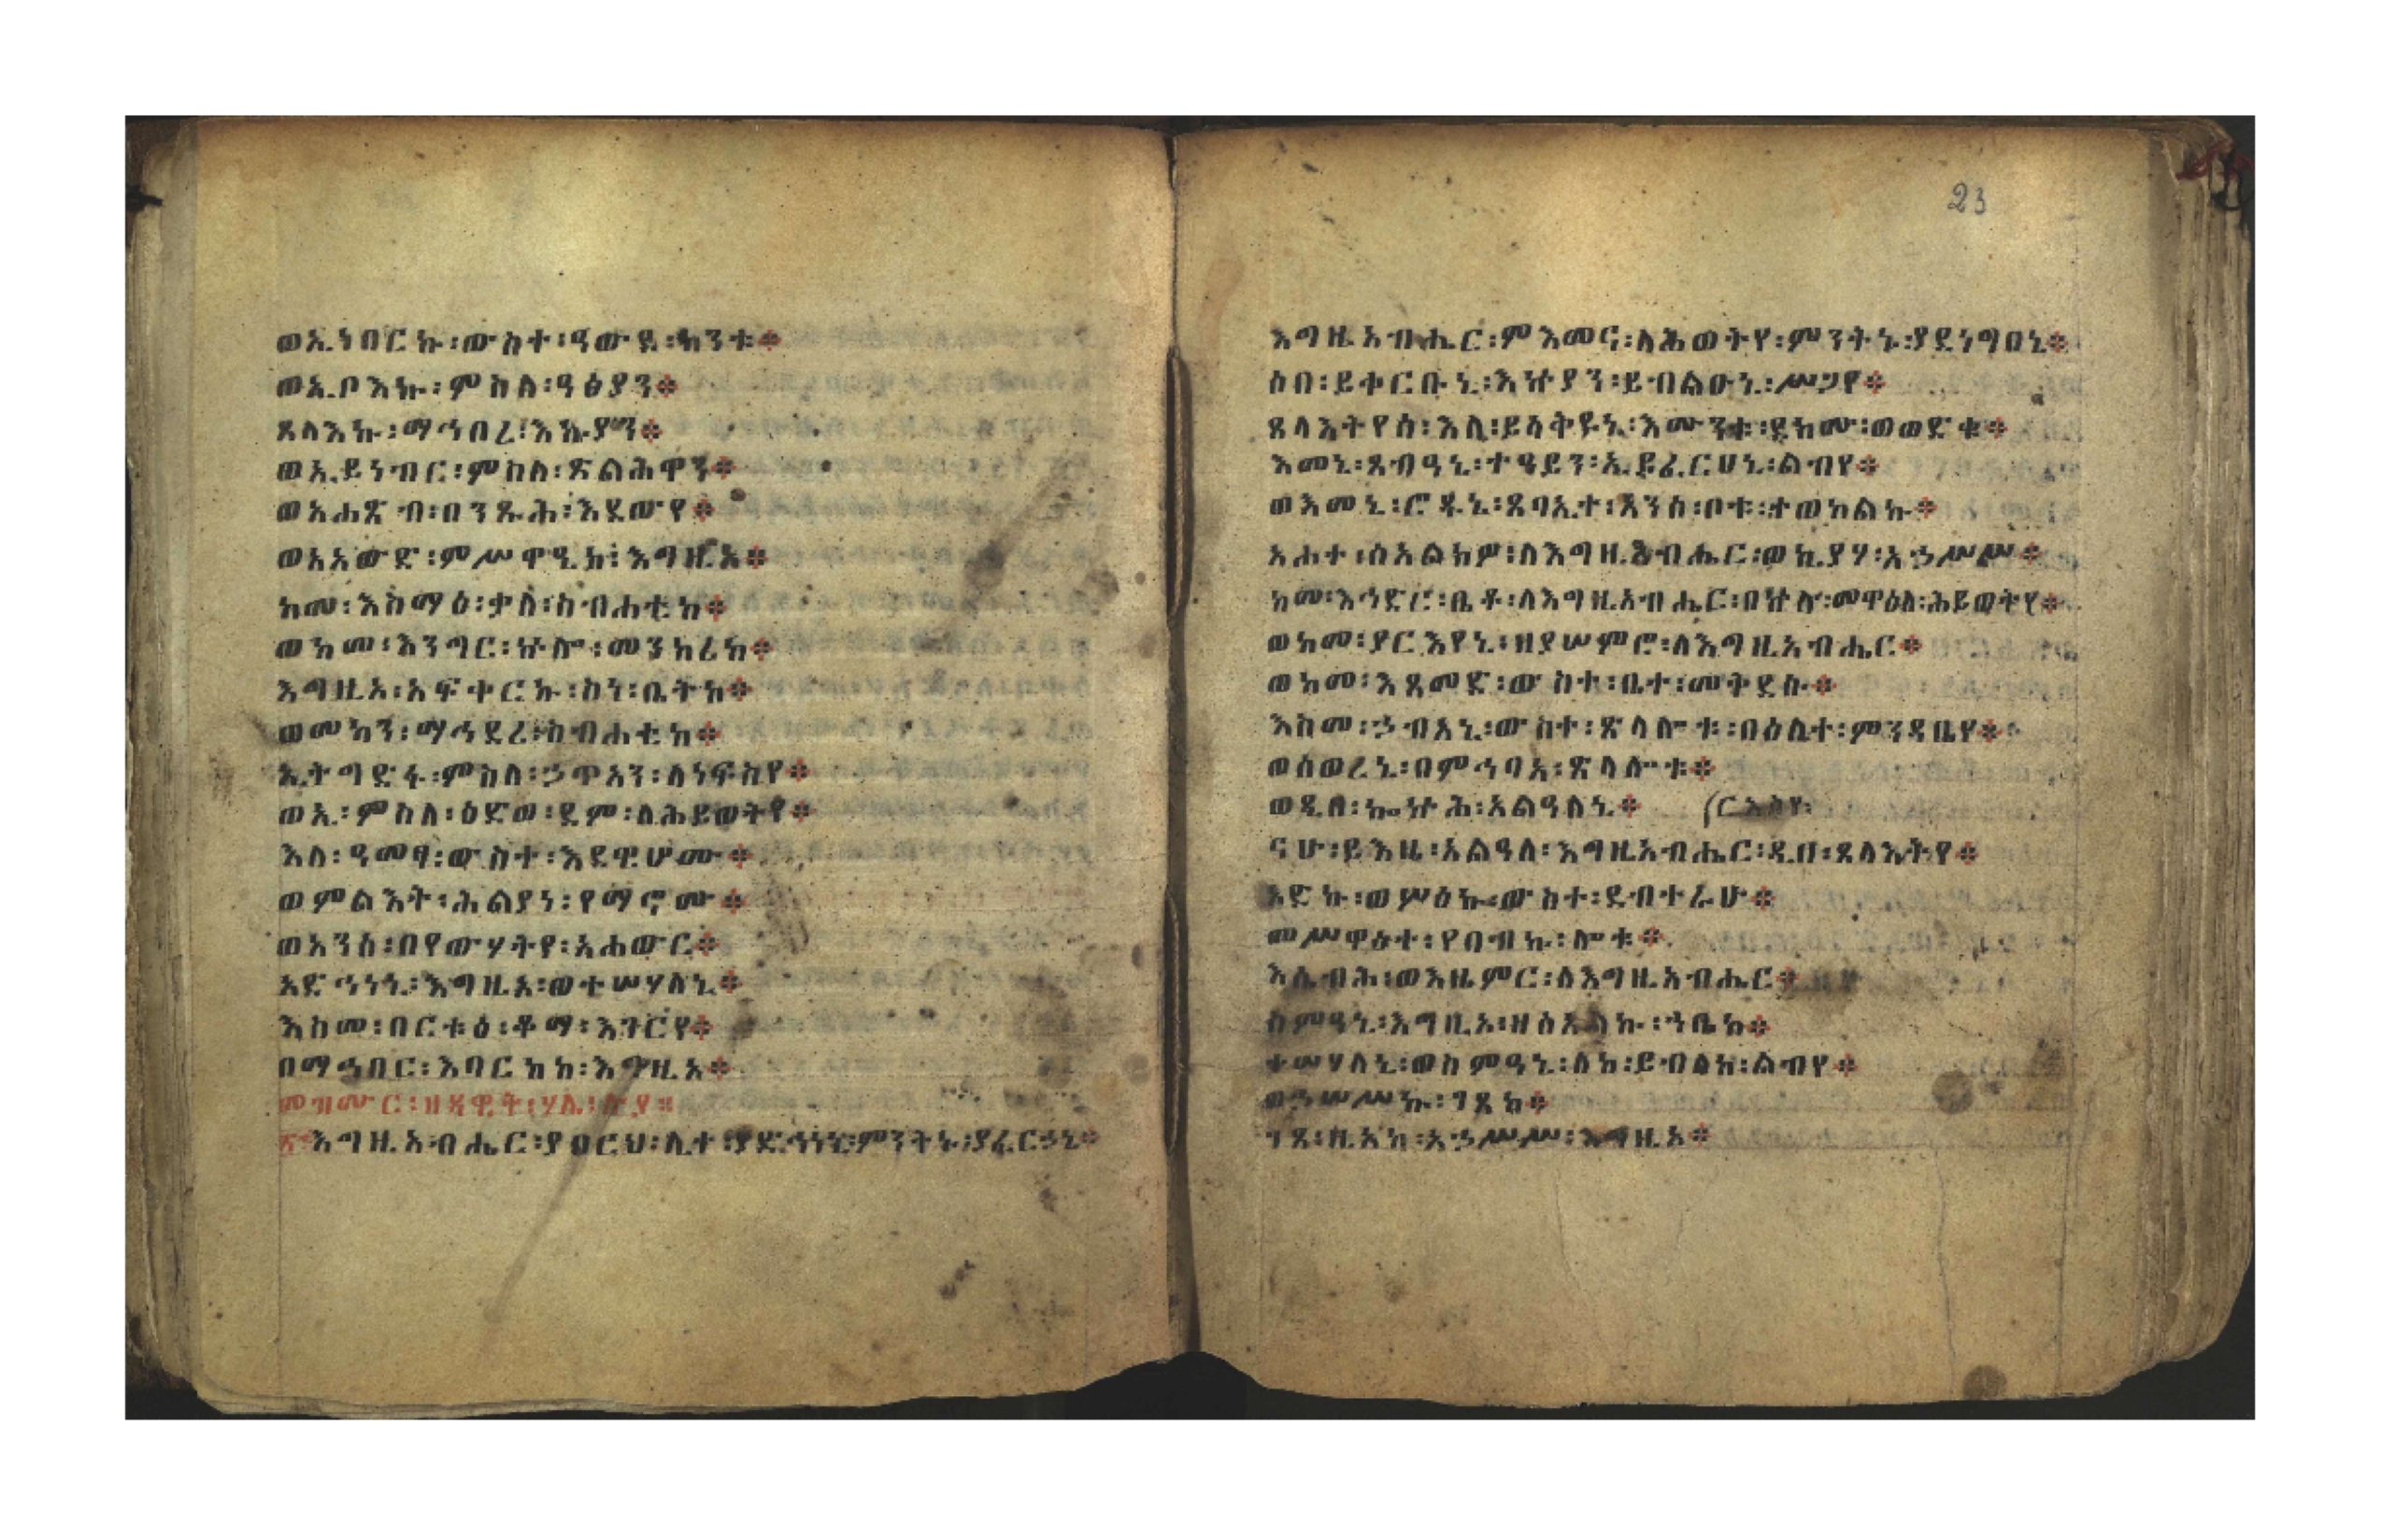 ወኢነበርኩ፡ውስተ፡ዓውደ፡ከንቱ፨
ወኢቦእኩ፡ምስለ፡ዓፅያን፨
ጸላእኩ፡ማኅበረ፡እኩያን፨
ወኢይነብር፡ምስለ፡ጽልሕዋን፨
ወአሐጽብ፡በንጹሕ፡እደውየ፨
ወአአውድ፡ምሥዋዒከ፡እግዚአ፨
ከመ፡እስማዕ፡ቃለ፡ስብሐቲከ፨
ወከመ፡እንግር፡ኵሎ፡መንክረከ፨
እግዚአ፡አፍቀርኩ፡ስነ፡ቤትከ፨
ወመካን፡ማኅደረ፡ስብሐቲከ፨
ኢትግድፋ፡ምስለ፡ኃጥአን፡ለነፍስየ፨
ወኢ፡ምስለ፡ዕድወ፡ደም፡ለሕይወትየ፨
እለ፡ዓመፃ፡ውስተ፡እደዊሆሙ፨
ወምልእት፡ሕልያነ፡የማኖሙ፨
ወአንስ፡በየውሃትየ፡አሐውር፨
አድኅነኒ፡እግዚአ፡ወተሠሃለኒ፨
እስመ፡በርቱዕ፡ቆማ፡እገርየ፨
በማኅበር፡እባርከከ፡እግዚአ፨
መዝሙር፡ዘዳዊት፡ሃሌ፡ሉያ፨
እግዚአብሔር፡ያበርህ፡ሊተ፡ያድኅነኒ፡ምንትኑ፡ያፈርኃኒ፨
23
እግዚአብሔር፡ምእመና፡ለሕወትየ፡ምንትኑ፡ያደነግፀኒ፨
ሶበ፡ይቀርቡኒ፡እኵያን፡ይብልዑኒ፡ሥጋየ፨
ጸላእትየሰ፡እለ፡ይሳቅዩኒ፡እሙንቱ፡ደክሙ፡ወወድቁ፨
እመኒ፡ጸብዓኒ፡ተዓይን፡ኢይፈርሀኒ፡ልብየ፨
ወእመኒ፡ሮዱኒ፡ጸባኢተ፡አንሰ፡ቦቱ፡ተወከልኩ፨
አሐተ፡ሰአልክዎ፡ለእግዚአብሔር፡ወኪያሃ፡አኃሥሥ፨
ከመ፡እኅድር፡ቤቶ፡ለእግዚአብሔር፡በኵሉ፡መዋዕለ፡ሕይወትየ፨
ወከመ፡ያርእየኒ፡ዘያሠምሮ፡ለእግዚአብሔር፨
ወከመ፡እጸመድ፡ውስተ፡ቤተ፡መቅደሱ፨
እስመ፡ኃብአኒ፡ውስተ፡ጽላሎቱ፡በዕለተ፡ምንዳቤየ፨
ወሰወረኒ፡በምኅባአ፡ጽላሎቱ፨
ወዲበ፡ኰኵሕ፡አልዓለኒ፨ ርእስየ፡
ናሁ፡ይእዜ፡አልዓለ፡እግዚአብሔር፡ዲበ፡ጸላእትየ፨
እድኩ፡ወሦዕኩ፡ውስተ፡ደብተራሁ፨
መሥዋዕተ፡የበብኩ፡ሎቱ፨
እሴብሕ፡ወእዜምር፡ለእግዚአብሔር፨
ስምዓኒ፡እግዚአ፡ዘሰአልኩ፡ኀቤከ፨
ተሠሃለኒ፡ወስምዓኒ፡ለከ፡ይብለከ፡ልብየ፨
ወኃሠሥኩ፡ገጸከ፨
ገጸ፡ዚአከ፡አኃሥሥ፡እግዚአ፨